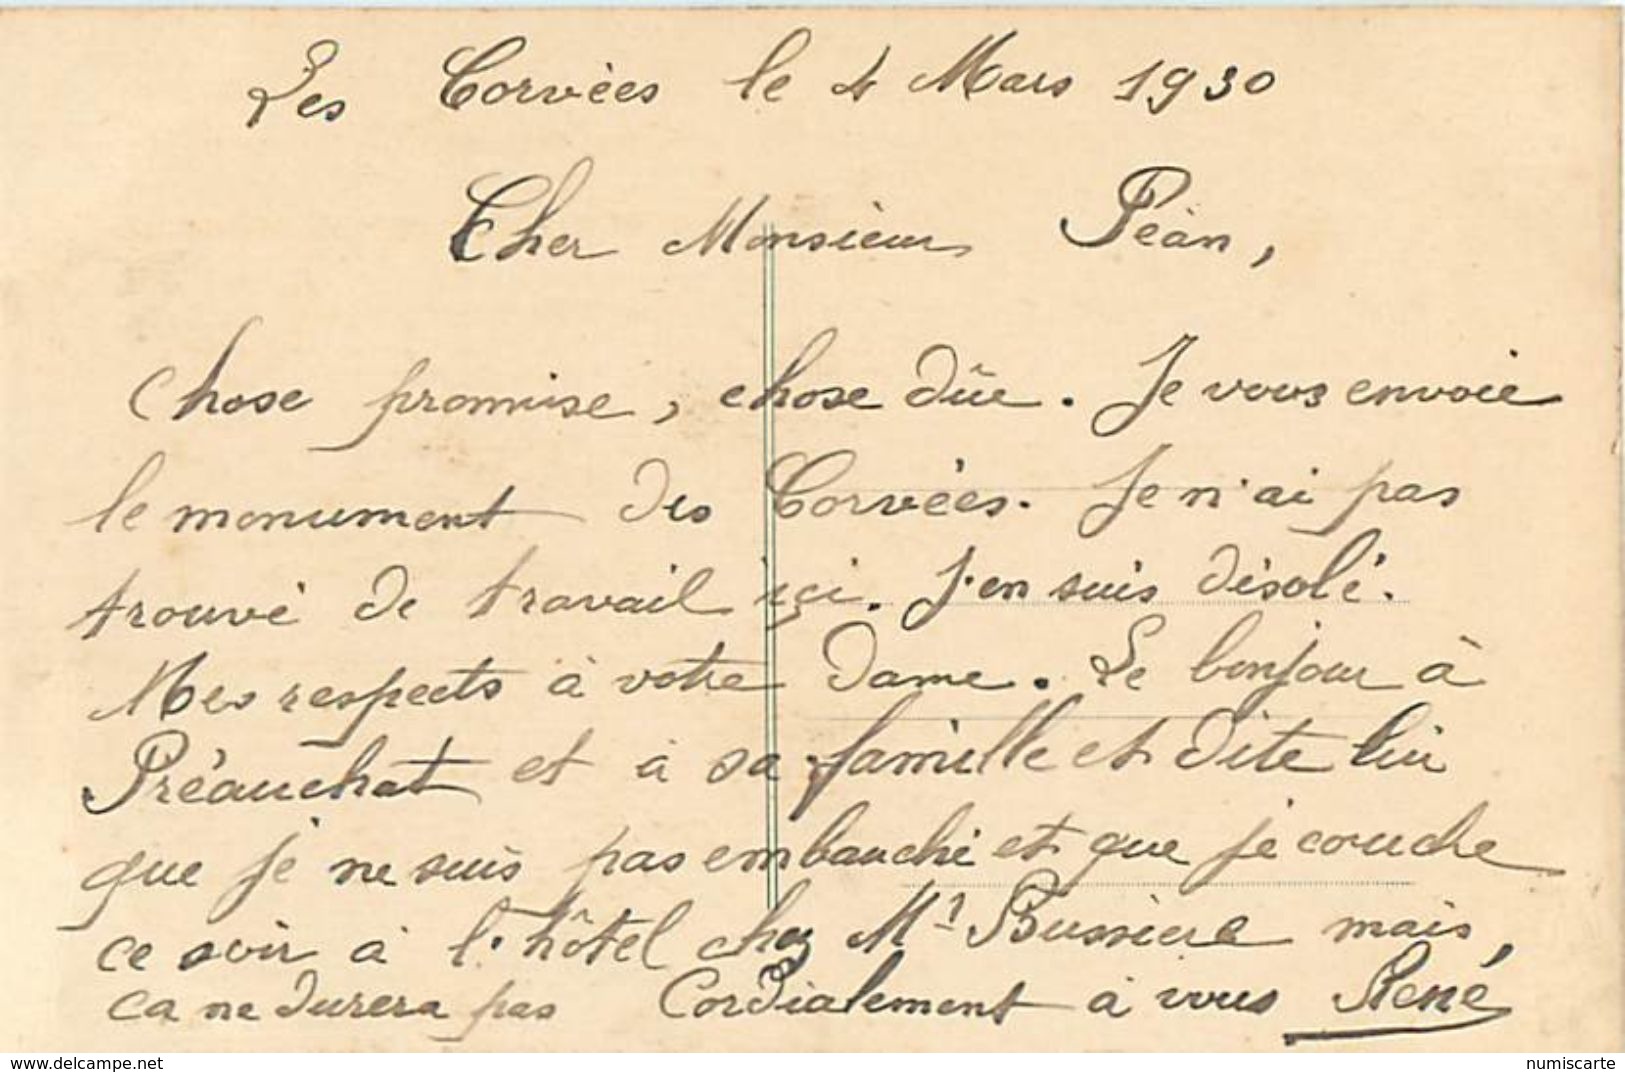 Les Corvées le 4 Mars 1930
Cher Monsieur Péan,
Chose promise, chose dûe. Je vous envoie
le monument des Corvées. Je n'ai pas
trouvé de travail içi. J'en suis désolé.
Mes respects à votre dame. Le bonjour à
Préauchat et à sa famille et dite lui
que je ne suis pas embauché et que je couche
ce soir à l'hôtel chez Mr Bussière mais,
ca ne durera pas Cordialement à vous René
www.delcampe.net
numiscarte